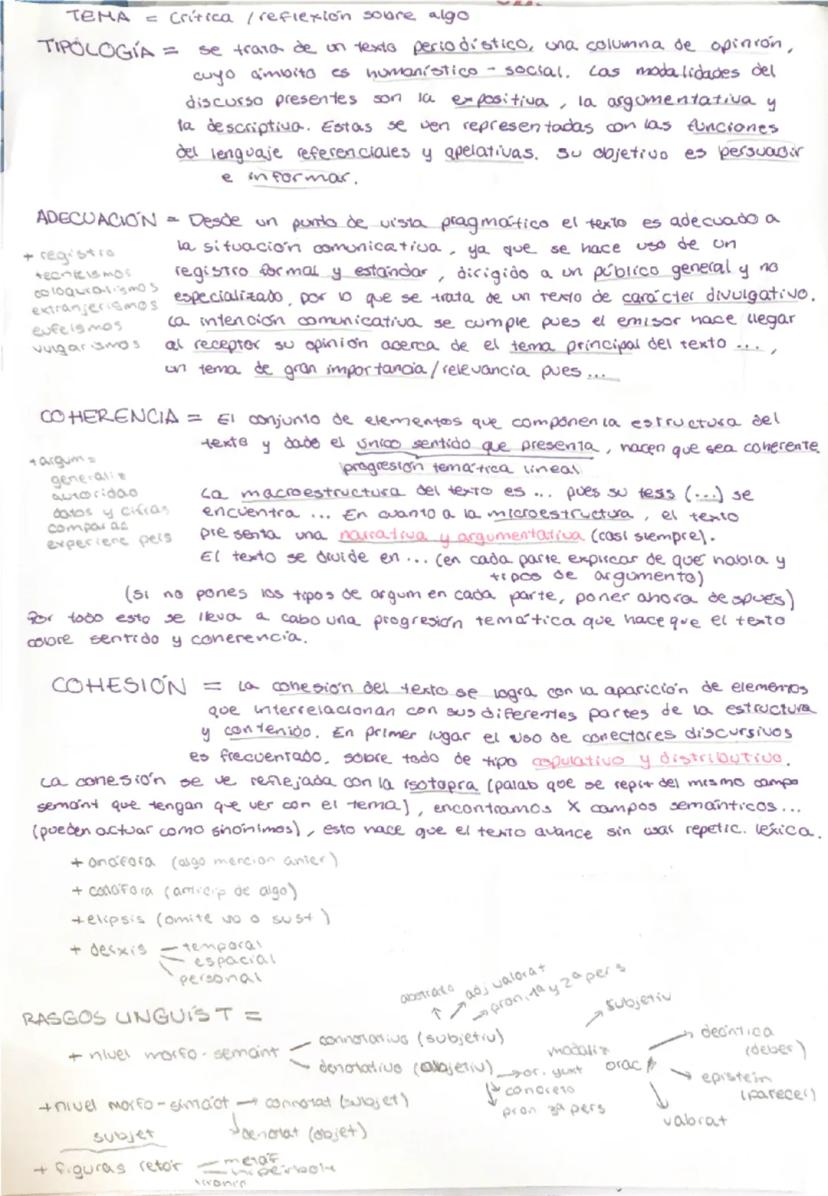 TEMA = Crítica / reflexión sobre algo
TIPOLOGÍA = se trata de un texto periodístico, una columna de opinión,
cuyo ámbito es humanístico - social. Las modalidades del
discurso presentes son la expositiva, la argumentativa y
la descriptiva. Estas se ven representadas con las funciones
del lenguaje referenciales y apelativas. Su objetivo es persuadir
e informar.
ADECUACIÓN = Desde un punto de vista pragmático el texto es adecuado a
la situación comunicativa, ya que se hace uso de un
registro formal y estándar, dirigido a un público general y no
especializado, por lo que se trata de un texto de carácter divulgativo.
La intención comunicativa se cumple pues el emisor hace llegar
al receptor su opinión acerca de el tema principal del texto ...,
un tema de gran importancia/relevancia pues ...
+ registro
tecnicismos
coloquialismos
extranjerismos
eufeismos
vulgarismos
COHERENCIA = El conjunto de elementos que componen la estructura del
texto y dado el único sentido que presenta, hacen que sea coherente
progresión temática lineal
La macroestructura del texto es ... pues su tesis (...) se
encuentra ... En cuanto a la microestructura, el texto
presenta una narrativa y argumentativa (casi siempre).
El texto se divide en ... (en cada parte explicar de que habla y
tipos de argumento)
+argum =
generaliz
autoridad
datos y cifras
comparac
experienc pers
(si no pones los tipos de argum en cada parte, poner ahora después)
Por todo esto se lleva a cabo una progresión temática que hace que el texto
cobre sentido y coherencia.
COHESIÓN = La cohesión del texto se logra con la aparición de elementos
que interrelacionan con sus diferentes partes de la estructura
y contenido. En primer lugar el uso de conectores discursivos
es frecuentado, sobre todo de tipo copulativo y distributivo.
La cohesión se ve reflejada con la isotopía (palab que se repit del mismo campo
semánt que tengan que ver con el tema), encontramos X campos semánticos ...
(pueden actuar como sinónimos), esto hace que el texto avance sin usar repetic. léxica.
+ anáfora (algo mencion anter)
+ catáfora (anticip de algo)
+ elipsis (omite vb o sust)
+ deixis
temporal
espacial
personal
RASGOS LINGUÍST =
+ nivel morfo-semánt
connotativo (subjetiv)
denotativo (objetiv)
abstrato
adj valorat
pron. 1ª y 2ª pers
or. yuxt
concreto
pron 3ª pers
modaliz
orac
subjetiv
deóntica
(deber)
epistém
(parecer)
valorat
+ nivel morfo-sintáct → connotat (subjet)
denotat (objet)
subjet
+ figuras retór
metáf
hipérbole
ironía